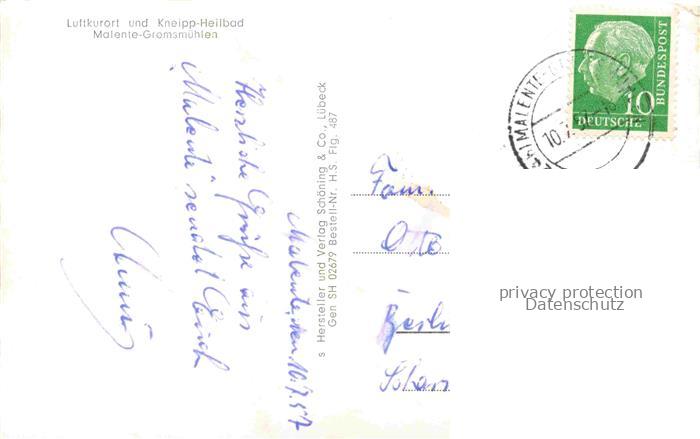 Luftkurort und Kneipp-Heilbad
Malente-Gremsmühlen
Malente, den 10.7.57
Herzliche Grüße aus
Malente sendet Euch
s Hersteller und Verlag Schöning & Co., Lübeck
Gen SH 02679 Bestell-Nr. H.S. Flg. 487
10
DEUTSCHE
BUNDESPOST
MALENTE-
10.7.
Fam.
Otto
Berli
privacy protection
Datenschutz